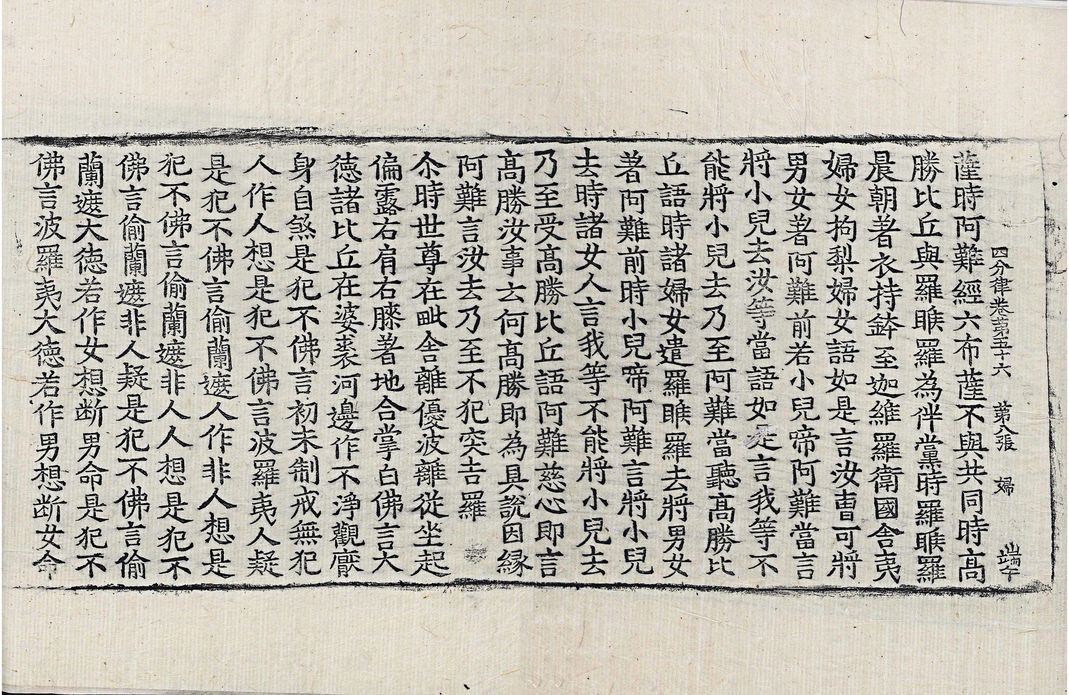 四分律卷第五十六 第八張 婦 端午
薩時阿難經六布薩不與共同時髙
勝比丘與羅睺羅為伴黨時羅睺羅
晨朝著衣持鉢至迦維羅衛國舍夷
婦女拘梨婦女語如是言汝曹可將
男女著阿難前若小兒啼阿難當言
將小兒去汝等當語如是言我等不
能將小兒去乃至阿難當聽髙勝比
丘語時諸婦女遣羅睺羅去將男女
著阿難前時小兒啼阿難言將小兒
去時諸女人言我等不能將小兒去
乃至受髙勝比丘語阿難慈心即言
髙勝汝事云何髙勝即為具說因緣
阿難言汝去乃至不犯突吉羅
尒時世尊在毗舍離優波離從坐起
偏露右肩右膝著地合掌白佛言大
德諸比丘在婆裘河邊作不淨觀厭
身自煞是犯不佛言初未制戒無犯
人作人想是犯不佛言波羅夷人疑
是犯不佛言偷蘭遮人作非人想是
犯不佛言偷蘭遮非人人想是犯不
佛言偷蘭遮非人疑是犯不佛言偷
蘭遮大德若作女想断男命是犯不
佛言波羅夷大德若作男想断女命